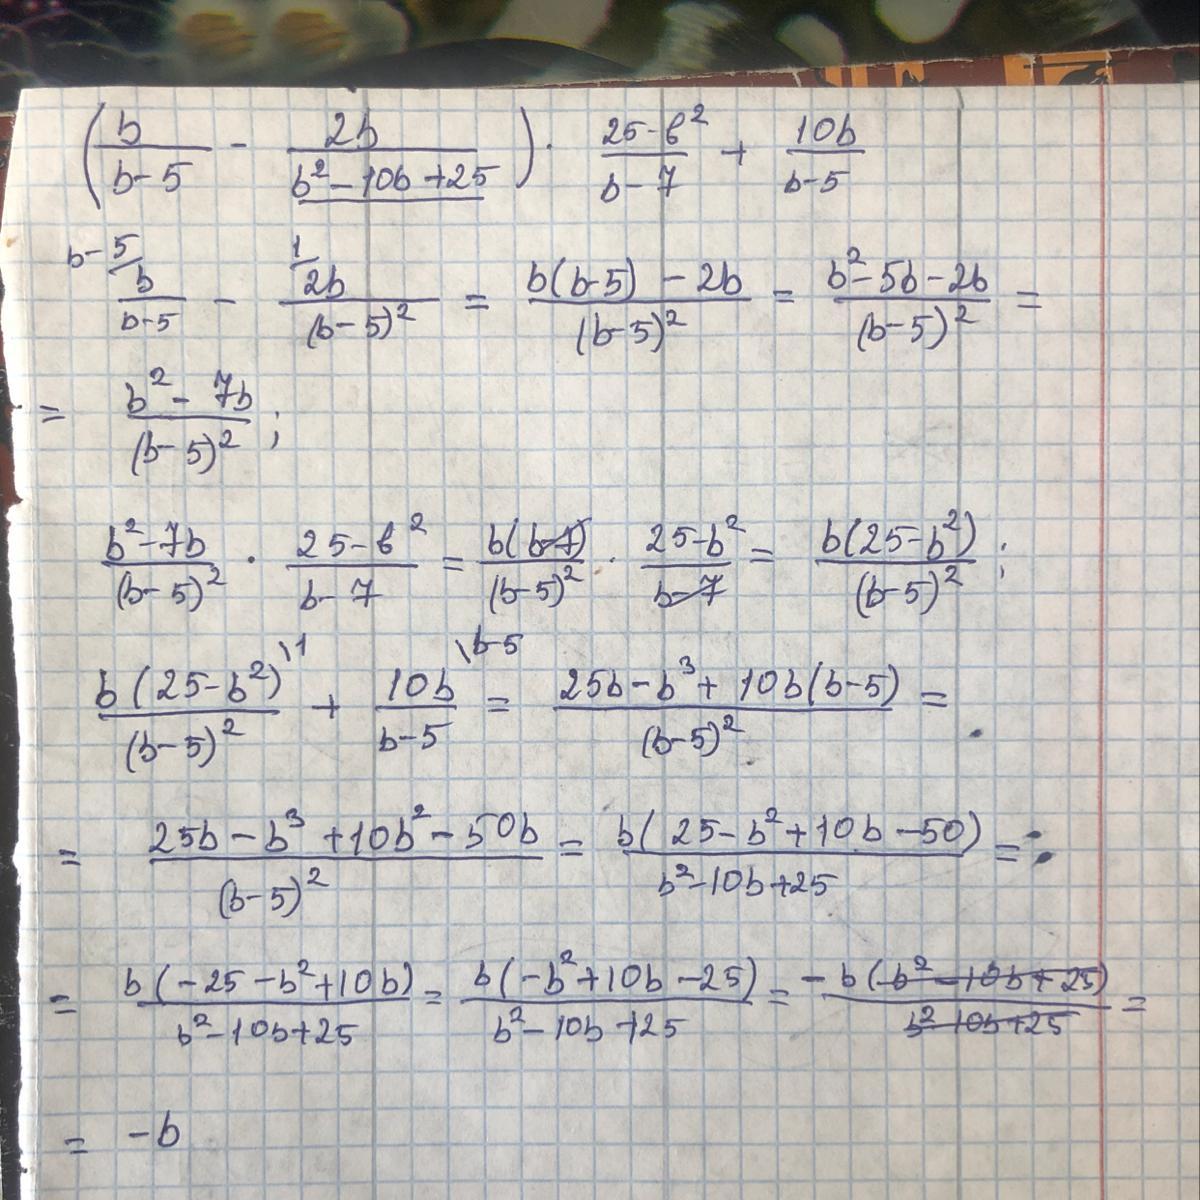 (b/(b-5) - 2b/(b²-10b+25)) · (25-b²)/(b-7) + 10b/(b-5)
b-5/ b/(b-5) - 1/ 2b/(b-5)² = (b(b-5) - 2b)/(b-5)² = (b²-5b-2b)/(b-5)² =
= (b²-7b)/(b-5)²;
(b²-7b)/(b-5)² · (25-b²)/(b-7) = b(b-7)/(b-5)² · (25-b²)/(b-7) = b(25-b²)/(b-5)²;
b(25-b²)\1/(b-5)² + 10b\b-5/(b-5) = (25b-b³+10b(b-5))/(b-5)² =
= (25b-b³+10b²-50b)/(b-5)² = b(25-b²+10b-50)/(b²-10b+25) =
= b(-25-b²+10b)/(b²-10b+25) = b(-b²+10b-25)/(b²-10b+25) = -b(b²-10b+25)/(b²-10b+25) =
= -b